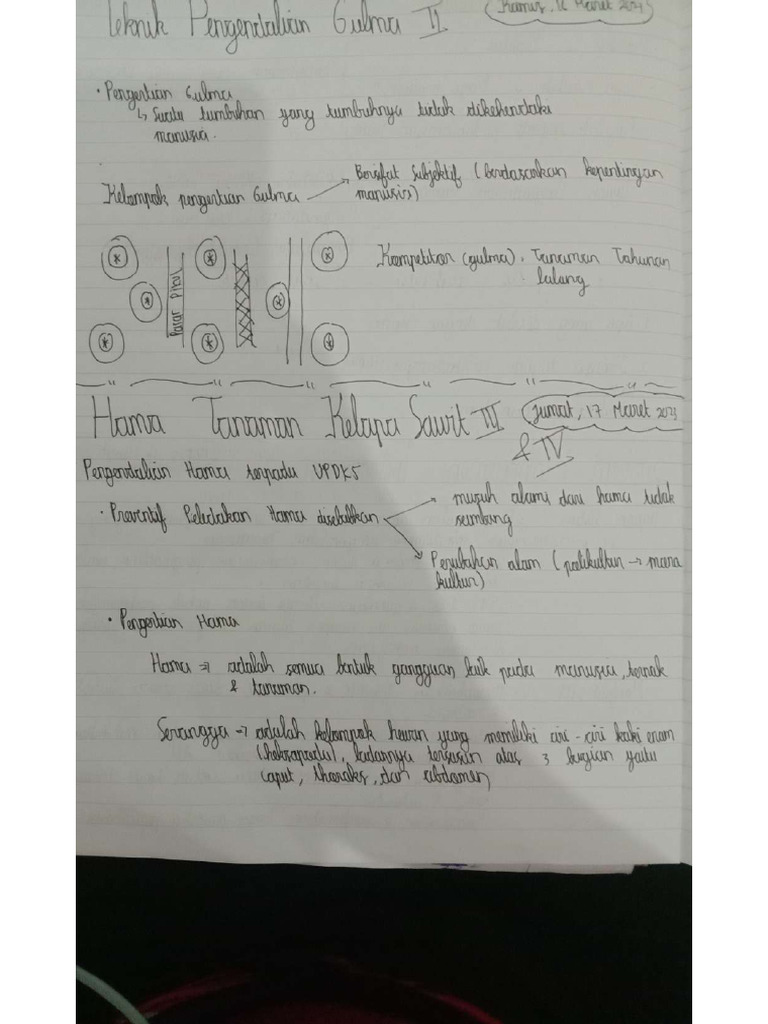 Teknik Pengendalian Gulma II
(Kamis, 16 Maret 2023)
• Pengertian Gulma
↳ Suatu tumbuhan yang tumbuhnya tidak dikehendaki
manusia.
Kelompok pengertian Gulma → Bersifat Subjektif (berdasarkan kepentingan
manusia)
Kompetitor (gulma) • Tanaman Tahunan
• lalang
Pasar Pikul
Hama Tanaman Kelapa Sawit III
& IV
Jumat, 17 Maret 2023
Pengendalian Hama terpadu UPDKS
• Preventif Peledakan Hama disebabkan → musuh alami dari hama tidak
seimbang
→ Perubahan alam (polikultur → mono
kultur)
• Pengertian Hama
Hama => adalah semua bentuk gangguan baik pada manusia, ternak
& tanaman.
Serangga => adalah kelompok hewan yang memiliki ciri-ciri kaki enam
(heksapoda), badannya tersusun atas 3 bagian yaitu
caput, thoraks, dan abdomen